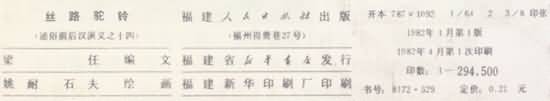 丝路驼铃
（通俗前后汉演义之十四）
梁任编文
姚耐石夫绘画
福建人民出版社出版
（福州得贵巷27号）
福建省新华书店发行
福建新华印刷厂印刷
开本 787×1092 1/64 2 3/8 印张
1982年1月第1版
1982年4月第1次印刷
印数：1—294,500
书号：8172·529 定价：0.21 元